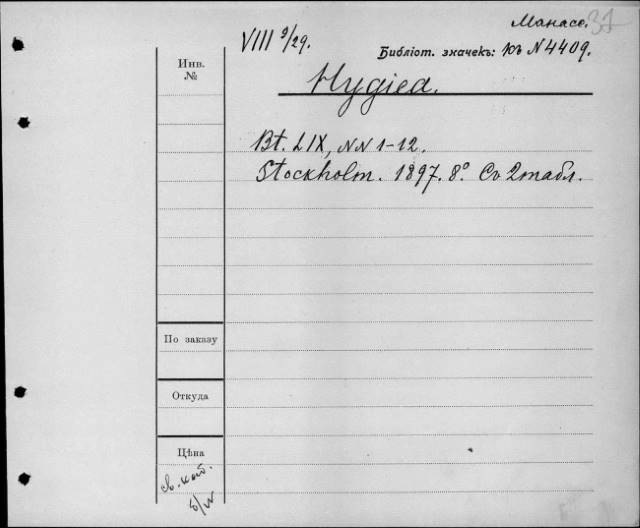 Манасе. 37
VIII 9/29.
Библіот. значекъ: къ N 4409.
Инв.
№
Hygiea.
Bt. LIX, NN 1-12.
Stockholm. 1897. 8° Съ 2 табл.
По заказу
Откуда
Цѣна
св. каб.